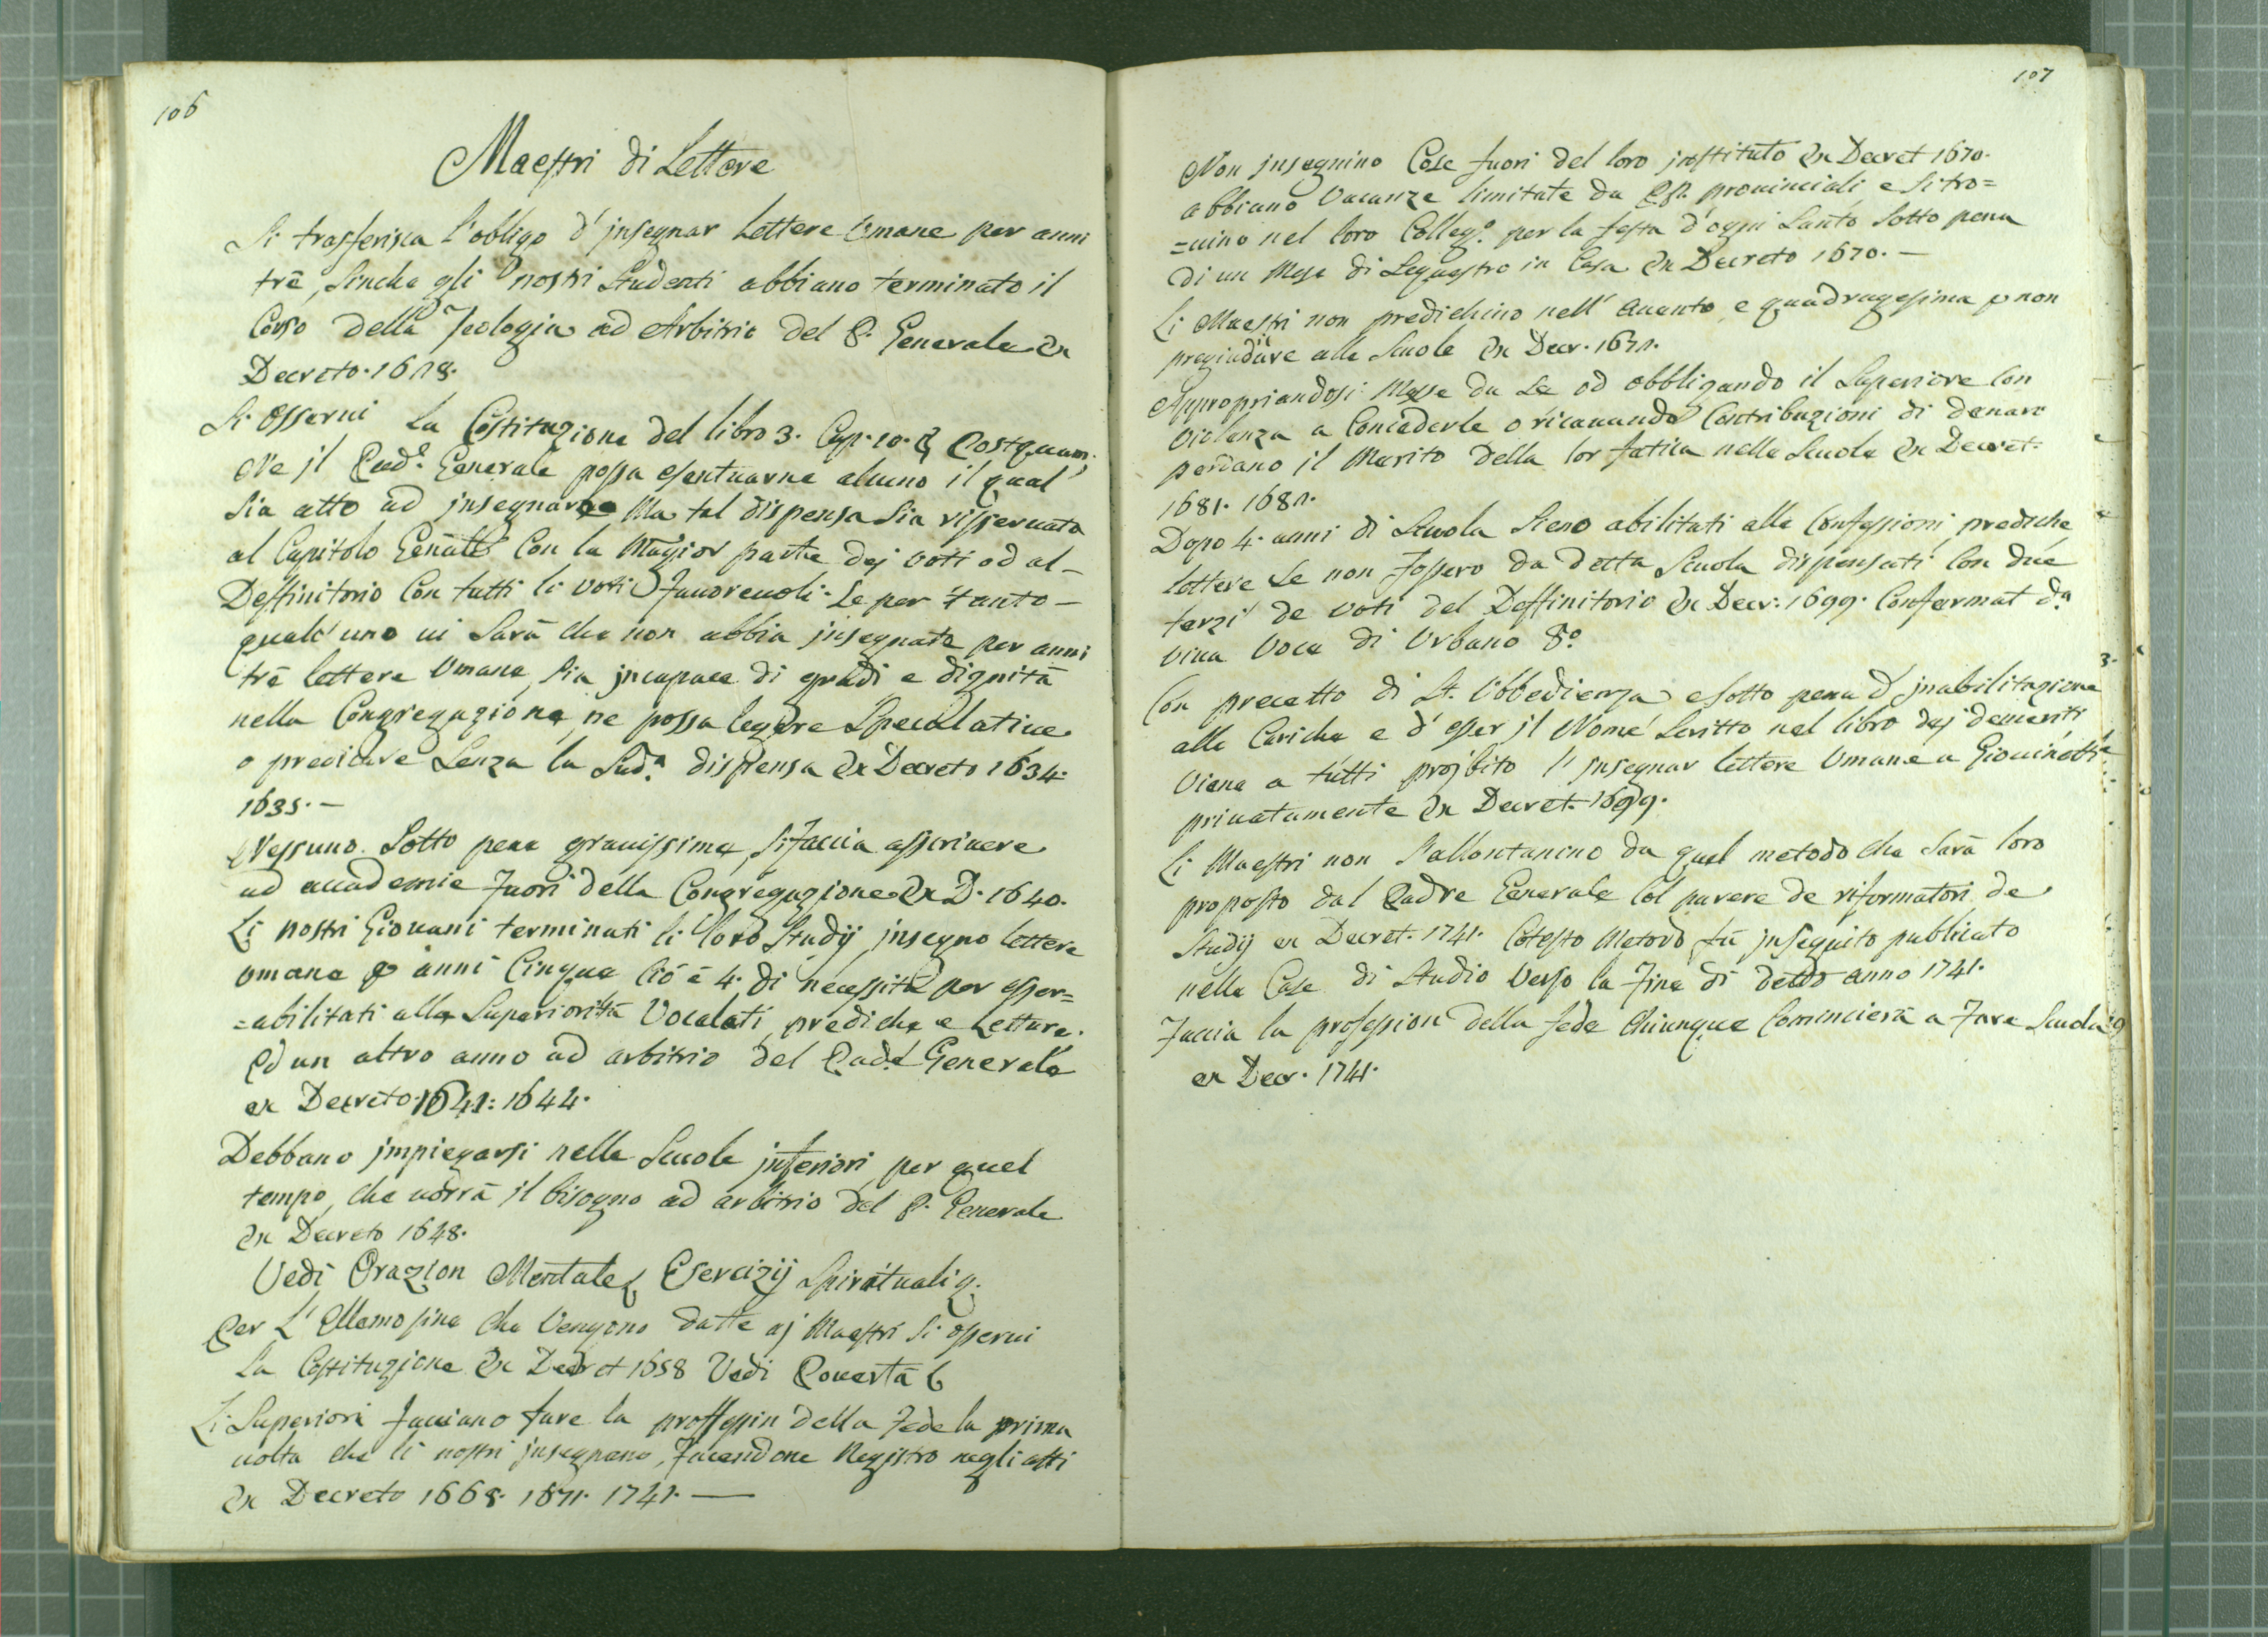 106
Maestri di Lettere
Si trasferisca l'obligo d' jnsegnar Lettere Umane per anni
tré, sinche gli nostri Studenti abbiano terminato il
Corso della Teologia ad Arbitrio del P. Generale Ex
Decreto. 1628.
Si osserui la Costituzione del libro 3. Cap. 10. § Postquam.
Ne jl Pad.e Generale possa esentuarne alcuno il qual'
sia atto ad jnsegnare Ma tal dispensa sia risseruata
al Capitolo Genãlle Con la Magior parte dej voti od al-
Deffinitorio Con tutti li voti fauoreuoli. Se per tanto -
qualc'uno ui sarà che non abbia jnsegnato per anni
tré lettere Umane, sia jncapace di gradi e dignità
nella Congregazione, ne possa legere Speculatiue
o predicare Senza la Sud.a dispensa Ex Decreto 1634.
1635. -
Nessuno Sotto pena grauissima, si faccia asscriuere
ad accademie fuori della Congregazione Ex D. 1640.
Li nostri Giouani terminati li loro Studij jnsegno lettere
umane p anni Cinque Ció é 4. di necessità per esser=
=abilitati alle Superiorità Vocalati, prediche e Letture.
Ed un altro anno ad arbitrio del Pad.e Generale
ex Decreto. 1641: 1644.
Debbano jmpiegarsi nelle Scuole jnferiori per quel
tempo, che uorrà jl bisogno ad arbitrio del P. Generale
Ex Decreto 1648.
Vedi Orazion Mentale Esercizij Spirituali g.
Per L' Ellemosine che Vengono datte aj Maestri si osserui
La Costituzione Ex Decret 1658 Vedi Pouertà 6
Li Superiori facciano fare la proffessin della Fede la prima
uolta che li nostri jnsegnano, facendone Registro negli atti
Ex Decreto 1668. 1671. 1741. -
107
Non jnsegnino Cose fuori del loro jnstituto Ex Decret 1670.
abbiano Vacanze limitate da PP. prouinciali e si tro=
=uino nel loro Colleg.o per la festa d'ogni Santo Sotto pena
di un Mese di Sequestro in Casa Ex Decreto 1670. -
Li Maestri non predichino nell' Auuento, e quadragesima p non
pregiudicare alle Scuole Ex Decr. 1671.
Appropriandosi Messe da Se od obbligando il Superiore Con
Violenza a Concederle o ricauando Contribuzioni di denaro
perdano il Merito della lor fatica nelle Scuole Ex Decret.
1681. 1682.
Dopo 4. anni di Scuola Sieno abilitati alle Confessioni, prediche
lettere Se non fossero da detta Scuola dispensati Con due
terzi de voti del Deffinitorio Ex Decr: 1699. Confermat d.a
viua Voce di Urbano 8.o
Con precetto di St. Ubbedienza e sotto pena d' jnabilitazione
alle Cariche e d' esser jl Nome Scritto nel libro dej demeriti
Viene a tutti projbito l' jnsegnar lettere Umane a Giouinetti
priuatamente Ex Decret. 1699.
Li Maestri non s'allontanino da quel metodo che sarà loro
proposto dal Padre Generale Col parere de riformatori de
Studij ex Decret. 1741. Cotesto Metodo fù jnseguito publicato
nelle Case di Studio Verso la fine di detto anno 1741.
Faccia la profession della fede Chiunque Comincierà a Fare Scuola
ex Decr. 1741.